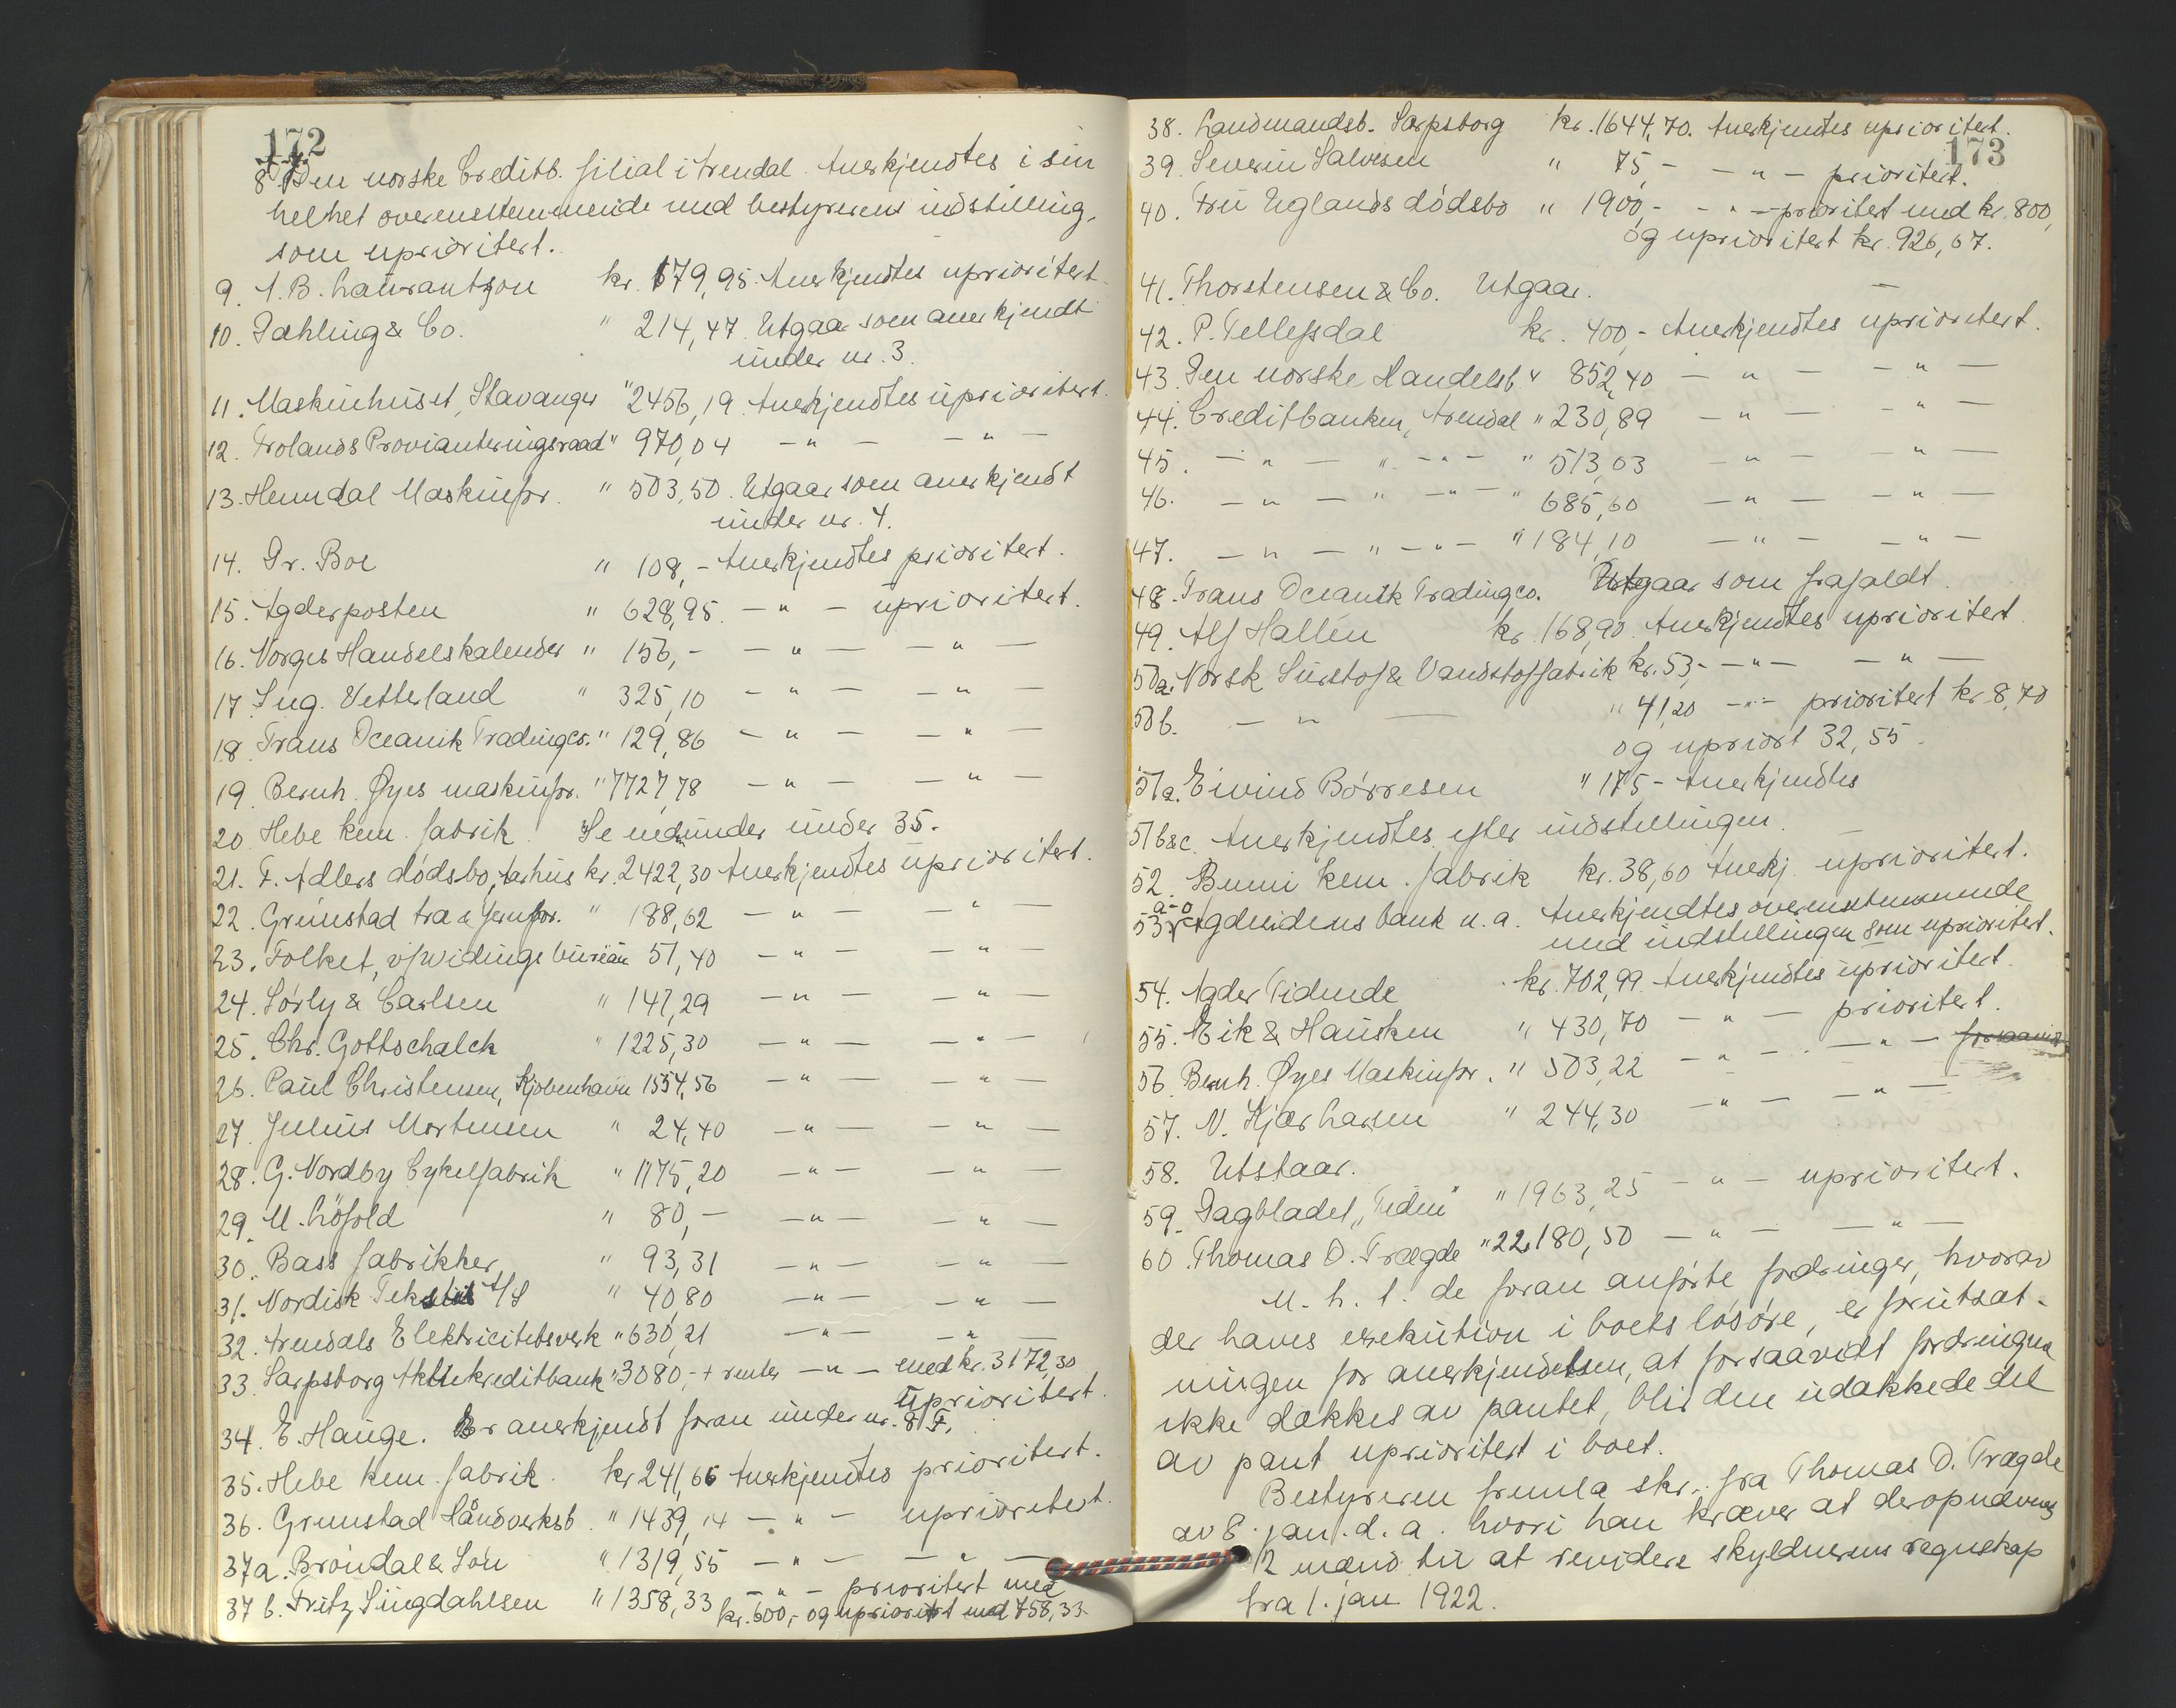 172
8 Den norske Creditb. filial i Arendal. Anerkjendtes i sin
helhet overensstemmende med bestyrerens indstilling,
som uprioritert.
9. A.B. Laurantzon kr. 179,95. Anerkjendtes uprioritert
10. Dahling & Co. " 214,47. Utgaar som anerkjendt
under nr. 3.
11. Maskinhuset, Stavanger " 2456,19. Anerkjendtes uprioritert.
12. Frolands Provianteringsraad " 970,04 — " — — " —
13. Heimdal Maskinfor. " 503,50. Utgaar som anerkjendt
under nr. 4.
14. Dr. Boe " 108,- Anerkjendtes prioritert.
15. Agderposten " 628,95. — " — uprioritert.
16. Norges Handelskalender " 156,- — " — — " —
17. Ing. Vetterland " 325,10 — " — — " —
18. Trans Oceanik Tradingco. " 129,86 — " — — " —
19. Bernh. Øyes maskinfor. " 7727,78 — " — — " —
20. Hebe kem. fabrik. Se nedunder under 35.
21. F. Adlers dödsbo, Aarhus kr. 2422,30 Anerkjendtes uprioritert.
22. Grimstad tra & Jernfor. " 188,62 — " — — " —
23. Folket, v/Widings bureau 51,40 — " — — " —
24. Sörly & Carlsen " 147,29 — " — — " —
25. Chr. Gottschalck " 1225,30 — " — — " —
26. Paul Christensen, Kjøbenhavn 1554,56 — " — — " —
27. Julius Mortensen " 24,40 — " — — " —
28. G. Nordby Cykelfabrik " 1175,20 — " — — " —
29. M. Löfold " 80,- — " — — " —
30. Bass fabrikker " 93,31 — " — — " —
31. Nordisk Tekstil A/S " 4080 — " — — " —
32. Arendals Elektricitetsverk " 630,21 — " — — " —
33. Sarpsborg Aktiekreditbank " 3080,- + renter — " — med kr. 3172,30
uprioritert.
34. E. Hauge. Er anerkjendt foran under nr. 8 F.
35. Hebe kem. fabrik. kr 241,66 Anerkjendtes prioritert.
36. Grimstad Håndverksb. " 1439,14 — " — uprioritert.
37a. Bröndal & Sön " 1319,55 — " — — " —
37 b. Fritz Lingdahlsen " 1358,33 — " — prioritert med
kr. 600,- og uprioritert med 758,33.
173
38. Landmandsb. Sarpsborg kr. 1644,70. Anerkjendtes uprioritert.
39. Severin Salvesen " 75,- — " — prioritert.
40. Fru Uglands dödsbo " 1900,- — " — prioritert med kr. 800,
og uprioritert kr. 926,67.
41. Thorstensen & Co. Utgaar.
42. P. Tellefsdal kr. 400,- Anerkjendtes uprioritert.
43. Den norske Handelsb. " 852,40 — " — — " —
44. Creditbanken, Arendal " 230,89 — " — — " —
45. — " — " — " — " 513,03 — " — — " —
46. — " — " — " — " 685,60 — " — — " —
47. — " — " — " — " 184,10 — " — — " —
48. Trans Oceanik Tradingco. Utgaar som frafaldt.
49. Alf Hallén kr. 168,90. Anerkjendtes uprioritert
50a. Norsk Surstof & Vandstoffabrik kr. 53,- — " — — " —
50b. — " — " 41,20 — " — prioritert kr 8,70
og upriort 32,55.
51a. Eivind Børresen " 175,- Anerkjendtes
51b&c. Anerkjendtes efter indstillingen.
52. Bumi kem. fabrik kr. 38,60 Anerkj. uprioritert.
53 a-o Agdesidens bank n. a. Anerkjendtes overensstemmende
med indstillingen som uprioritert.
54. Agder Tidende kr. 702,99 Anerkjendtes uprioritert.
55. Eik & Hausken " 430,70 — " — prioritert.
56. Bernh. Øyes Maskinfor. " 503,22 — " — — " — forsaavidt
57. N. Kjær Larsen " 244,30 — " — — " —
58. Utstaar.
59. Dagbladet „Tiden" " 1963,25 — " — uprioritert.
60. Thomas D. Trægde " 22,180,50 — " — — " —
M. h. t. de foran anförte fordringer, hvorav
der haves exekution i boets lösöre, er forutsæt-
ningen for anerkjendelsen, at forsaavidt fordringen
ikke dækkes av pantet, blir den udækkede del
av pant uprioritert i boet.
Bestyreren fremla skr. fra Thomas D. Trægde
av 8. jan. d. a. hvori han kræver at der opnævnes
2 mænd til at revidere skyldnerens regnskap
fra 1. jan 1922.